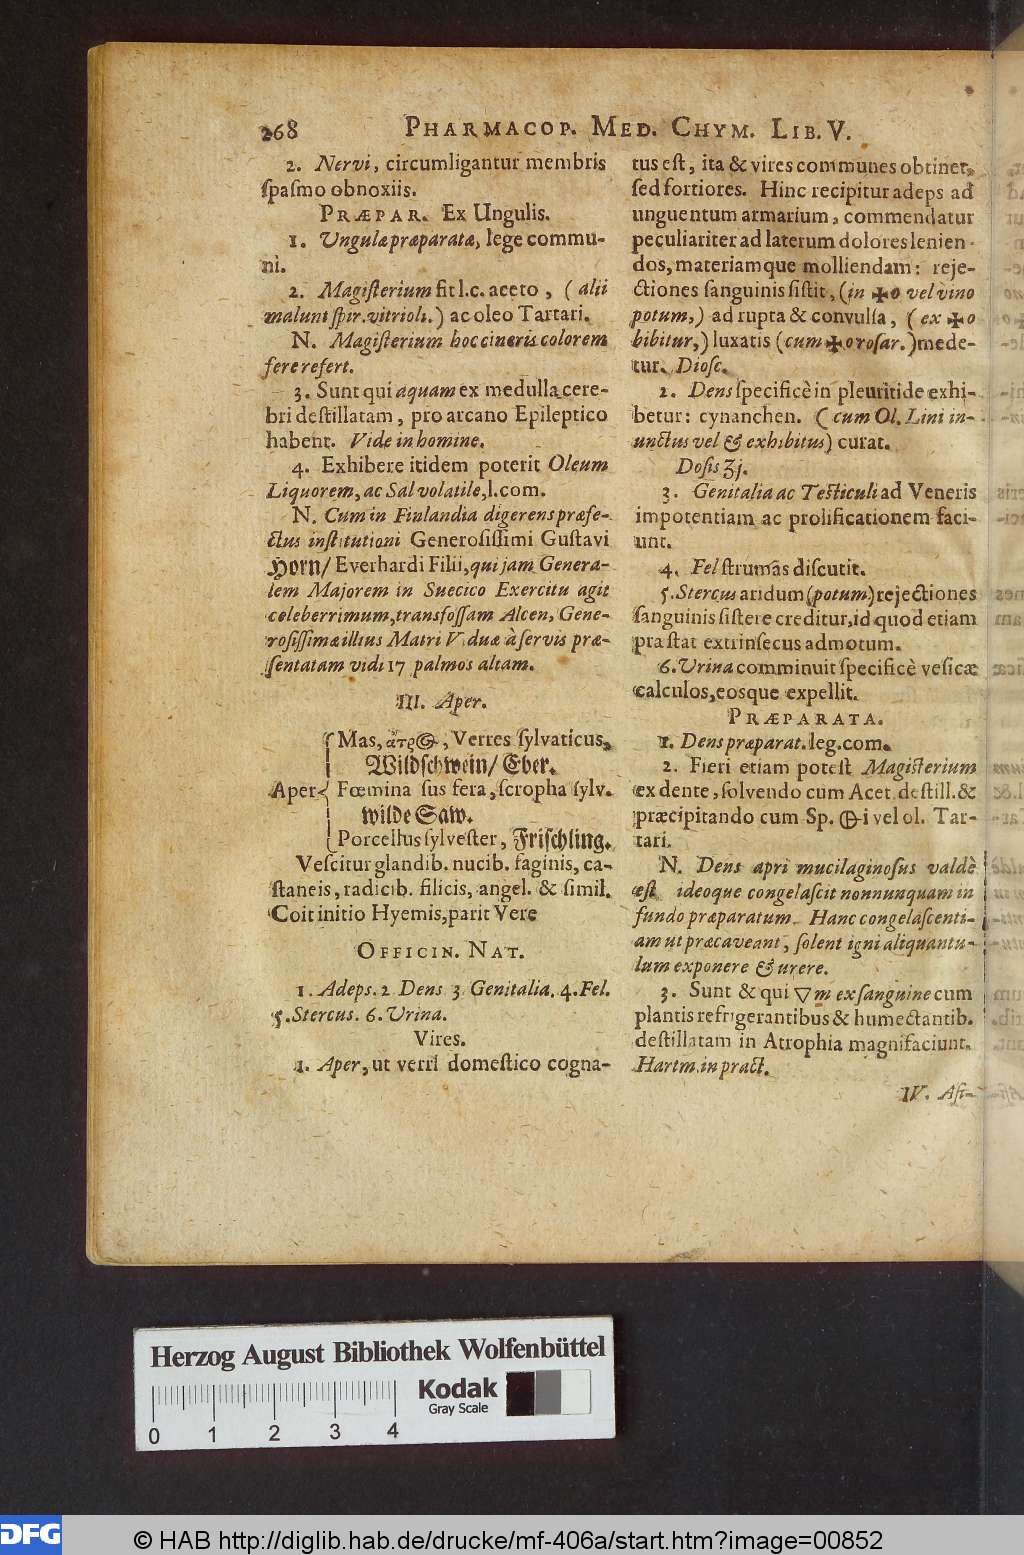 268 PHARMACOP. MED. CHYM. LIB. V.
2. Nervi, circumligantur membris
ſpaſmo obnoxiis.
PRÆPAR. Ex Ungulis.
1. Ungulæ præparatæ, lege commu-
ni.
2. Magiſterium fit l.c. aceto, (alii
malunt ſpir. vitrioli.) ac oleo Tartari.
N. Magiſterium hoc cineris colorem
fere refert.
3. Sunt qui aquam ex medulla cere-
bri deſtillatam, pro arcano Epileptico
habent. Vide in homine.
4. Exhibere itidem poterit Oleum
Liquorem, ac Sal volatile, l.com.
N. Cum in Finlandia digerens præfe-
ctus inſtitutioni Generoſiſſimi Guſtavi
Horn/ Everhardi Filii, qui jam Genera-
lem Majorem in Suecico Exercitu agit
celeberrimum, transfoſſam Alcen, Gene-
roſiſſimæ illius Matri Viduæ à ſervis præ-
ſentatam vidi 17 palmos altam.
III. Aper.
Mas, Verres ſylvaticus,
Wildſchwein/ Eber.
Aper Fœmina ſus fera, ſcropha ſylv.
wilde Saw.
Porcellus ſylveſter, Friſchling.
Veſcitur glandib. nucib. faginis, ca-
ſtaneis, radicib. filicis, angel. & ſimil.
Coit initio Hyemis, parit Vere
OFFICIN. NAT.
1. Adeps. 2 Dens 3 Genitalia. 4. Fel.
5. Stercus. 6. Urina.
Vires.
1. Aper, ut verri domeſtico cogna-
tus eſt, ita & vires communes obtinet,
ſed fortiores. Hinc recipitur adeps ad
unguentum armarium, commendatur
peculiariter ad laterum dolores lenien-
dos, materiamque molliendam: reje-
ctiones ſanguinis ſiſtit, (in ✠o vel vino
potum,) ad rupta & convulſa, (ex ✠o
bibitur,) luxatis (cum ✠o roſar.) mede-
tur. Dioſc.
2. Dens ſpecificè in pleuritide exhi-
betur: cynanchen. (cum Ol. Lini in-
unctus vel & exhibitus) curat.
Doſis ʒj.
3. Genitalia ac Teſticuli ad Veneris
impotentiam ac prolificationem faci-
unt.
4. Fel ſtrumas diſcutit.
5. Stercus aridum (potum) rejectiones
ſanguinis ſiſtere creditur, id quod etiam
præſtat extrinſecus admotum.
6. Urina comminuit ſpecificè veſicæ
calculos, eosque expellit.
PRÆPARATA.
1. Dens præparat. leg. com.
2. Fieri etiam poteſt Magiſterium
ex dente, ſolvendo cum Acet. deſtill. &
præcipitando cum Sp. i vel ol. Tar-
tari.
N. Dens apri mucilaginoſus valdè
eſt ideoque congelaſcit nonnunquam in
fundo præparatum. Hanc congelaſcenti-
am ut præcaveant, ſolent igni aliquantu-
lum exponere & urere.
3. Sunt & qui ▽m ex ſanguine cum
plantis refrigerantibus & humectantib.
deſtillatam in Atrophia magnifaciunt.
Hartm. in pract.
IV. Aſi-
Herzog August Bibliothek Wolfenbüttel
Kodak
Gray Scale
0 1 2 3 4
DFG
© HAB http://diglib.hab.de/drucke/mf-406a/start.htm?image=00852